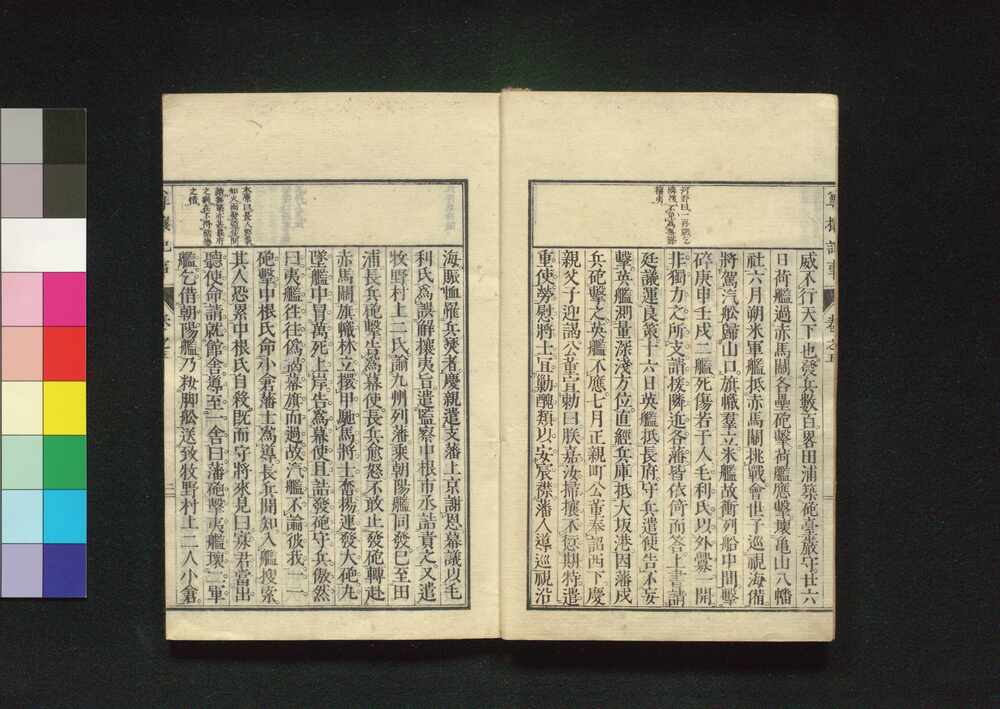 河野曰一再戰乃
威不行天下也發兵數百畧田浦築砲臺嚴守廿六
日荷艦過赤馬關各壘砲擊荷艦應擊壞龜山八幡
社六月朔米軍艦抵赤馬關挑戰會世子巡視海備
將駕汽舩歸山口旗幟羣立米艦故衝列船中間擊
碎庚申壬戌二艦死傷若干人毛利氏以外釁一開
非獨力之所支請援隣近各藩皆依倚而答上書請
廷議運良策十六日英艦抵長府守兵遣使告不妄
擊英艦測量深淺方位直經兵庫抵大坂港因藩戍
兵砲擊之英艦不應七月正親町公董奉詔西下慶
親父子迎謁公董宣勅曰朕嘉汝掃攘不愆期特遣
重使勞慰將士宜勦醜類以安宸襟藩人導巡視沿
木原曰長人舉動
如火而發
之機
海賑恤罹兵燹者慶親遣支藩上京謝恩幕議以毛
利氏爲誤解攘夷旨遣監察中根市丞詰責之又遣
牧野村上二氏諭九州列藩乘朝陽艦同發已至田
浦長兵砲擊告爲幕使長兵愈怒不敢止發砲轉赴
赤馬關旗幟林立擐甲馳馬將士奮揚連發大砲九
墜艦中冒萬死上岸告爲幕使且詰發砲守兵傲然
曰夷艦往往僞裔幕旗而過故汽艦不論彼我一一
砲擊中根氏命小倉藩士爲導長兵聞知入艦搜索
其人恐累中根氏自殺既而守將來見曰寡君當出
聽使命請就館舍導至一舍曰藩砲擊夷艦壞二軍
艦乞借朝陽艦乃救脚舩送致牧野村上二人小倉